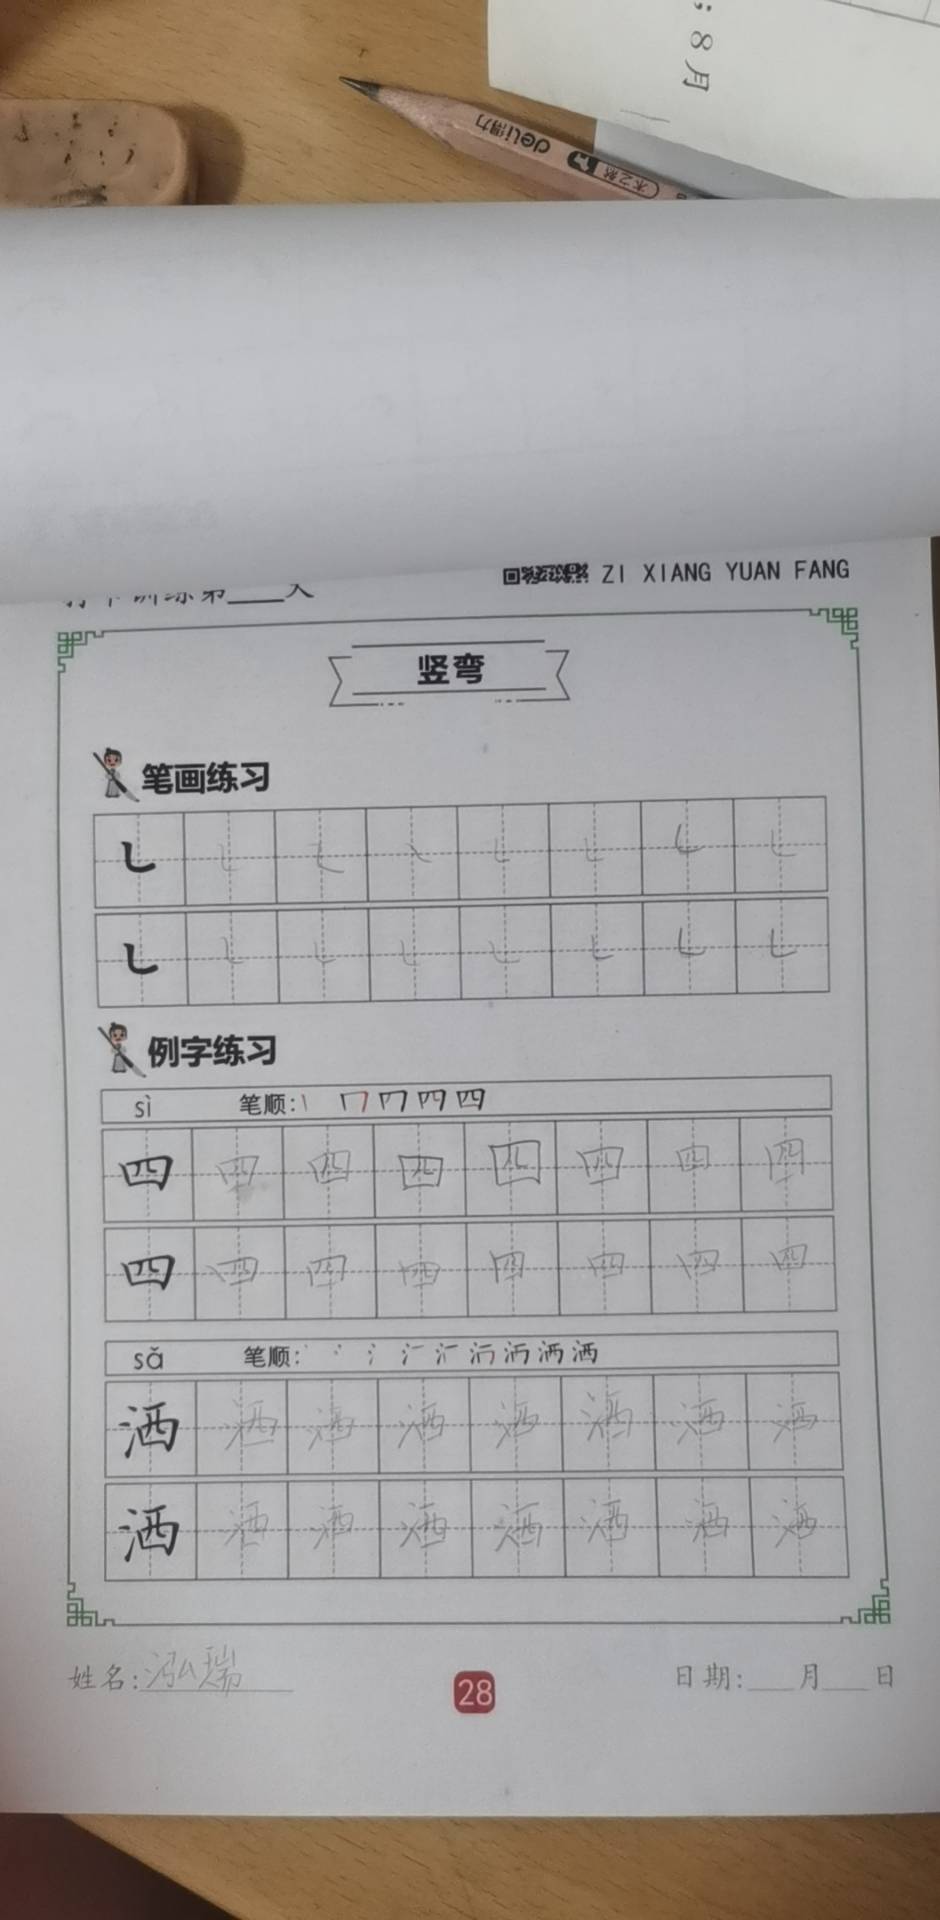 ；8月
deli得力
木之熱
打卡训练第____天
ZI XIANG YUAN FANG
竖弯
笔画练习
例字练习
sì 笔顺：丨 冂 冂 四 四
四 四 四 四 四 四 四 四
四 四 四 四 四 四 四 四
sǎ 笔顺：洒
洒 洒 洒 洒 洒 洒 洒 洒
洒 洒 洒 洒 洒 洒 洒 洒
姓名：泓瑞
28
日期：____月____日